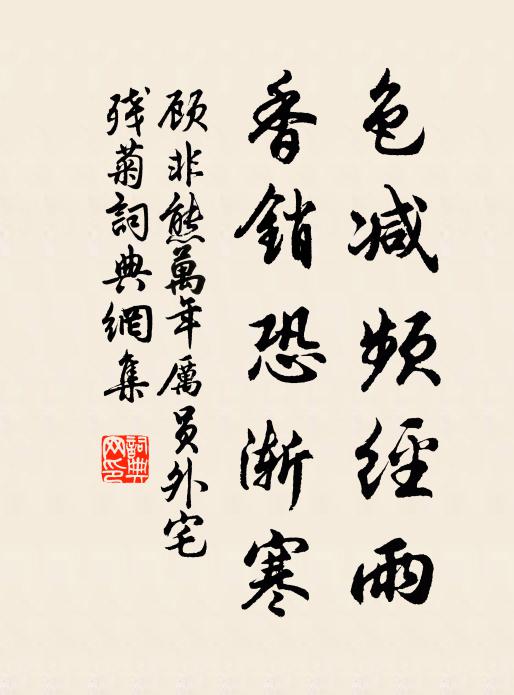 色减頻經雨
香銷恐漸寒
顧非熊萬年厲員外宅
殘菊詞典網集
詞典
网印